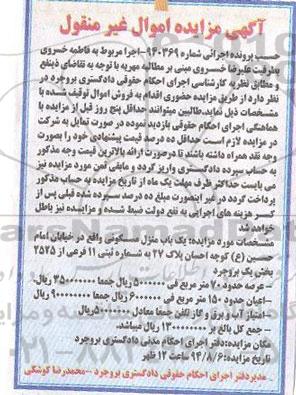 آگهی مزایده اموال غیر منقول
حسب پرونده اجرائی شماره ۹۴۰۳۶۹-اجرا مربوط به فاطمه خسروی
بطرفیت علیرضا خسروی مبنی بر مطالبه مهریه با توجه به تقاضای ذینفع
و مطابق نظریه کارشناسی اجرای احکام حقوقی دادگستری بروجرد در
نظر دارد از طریق مزایده حضوری اقدام به فروش اموال توقیف شده با
مشخصات ذیل نماید.طالبین میتوانند حداقل پنج روز قبل از مزایده با
هماهنگی اجرای احکام حقوقی بازدید نموده در صورت تمایل به شرکت
در مزایده لازم است حداقل ده درصد قیمت پیشنهادی خود را بصورت
وجه نقد همراه داشته باشند تا درصورت ارائه بالاترین قیمت وجه مذکور
به حساب سپرده دادگستری واریز گردد و مابقی ثمن مورد مزایده نیز
می بایست حداکثر ظرف مهلت یک ماه از تاریخ مزایده به حساب مذکور
پرداخت گردد در غیر اینصورت مبلغ ده درصد سپرده شده قبلی پس از
کسر هزینه های اجرائی به نفع دولت ضبط شده و مزایده نیز باطل
خواهد شد
مشخصات مورد مزایده: یک باب منزل مسکونی واقع در خیابان امام
حسین (ع) کوچه احسان پلاک ۲۷ به شماره ثبتی ۱۱ فرعی از ۲۵۲۵
بخش یک بروجرد
- عرصه حدود ۷۰ متر مربع فی ۵۰۰۰۰۰۰ ریال جمعا ۳۵۰۰۰۰۰۰۰ ریال
-اعیان حدود ۱۵۰ متر مربع فی ۶۰۰۰۰۰۰ ریال جمعا ۹۰۰۰۰۰۰۰۰ ریال
- امتیاز آب و برق و گاز تلفن جمعا معادل ۵۰۰۰۰۰۰۰ ریال
- جمع کل بالغ بر ۱۳۰۰۰۰۰۰۰۰ ریال میباشد.
مکان مزایده:دفتر اجرای احکام مدنی دادگستری بروجرد
تاریخ مزایده:۹۴/۸/۶ ساعت ۱۲ ظهر
مدیردفتر اجرای احکام حقوقی دادگستری بروجرد -محمدرضا کوشکی